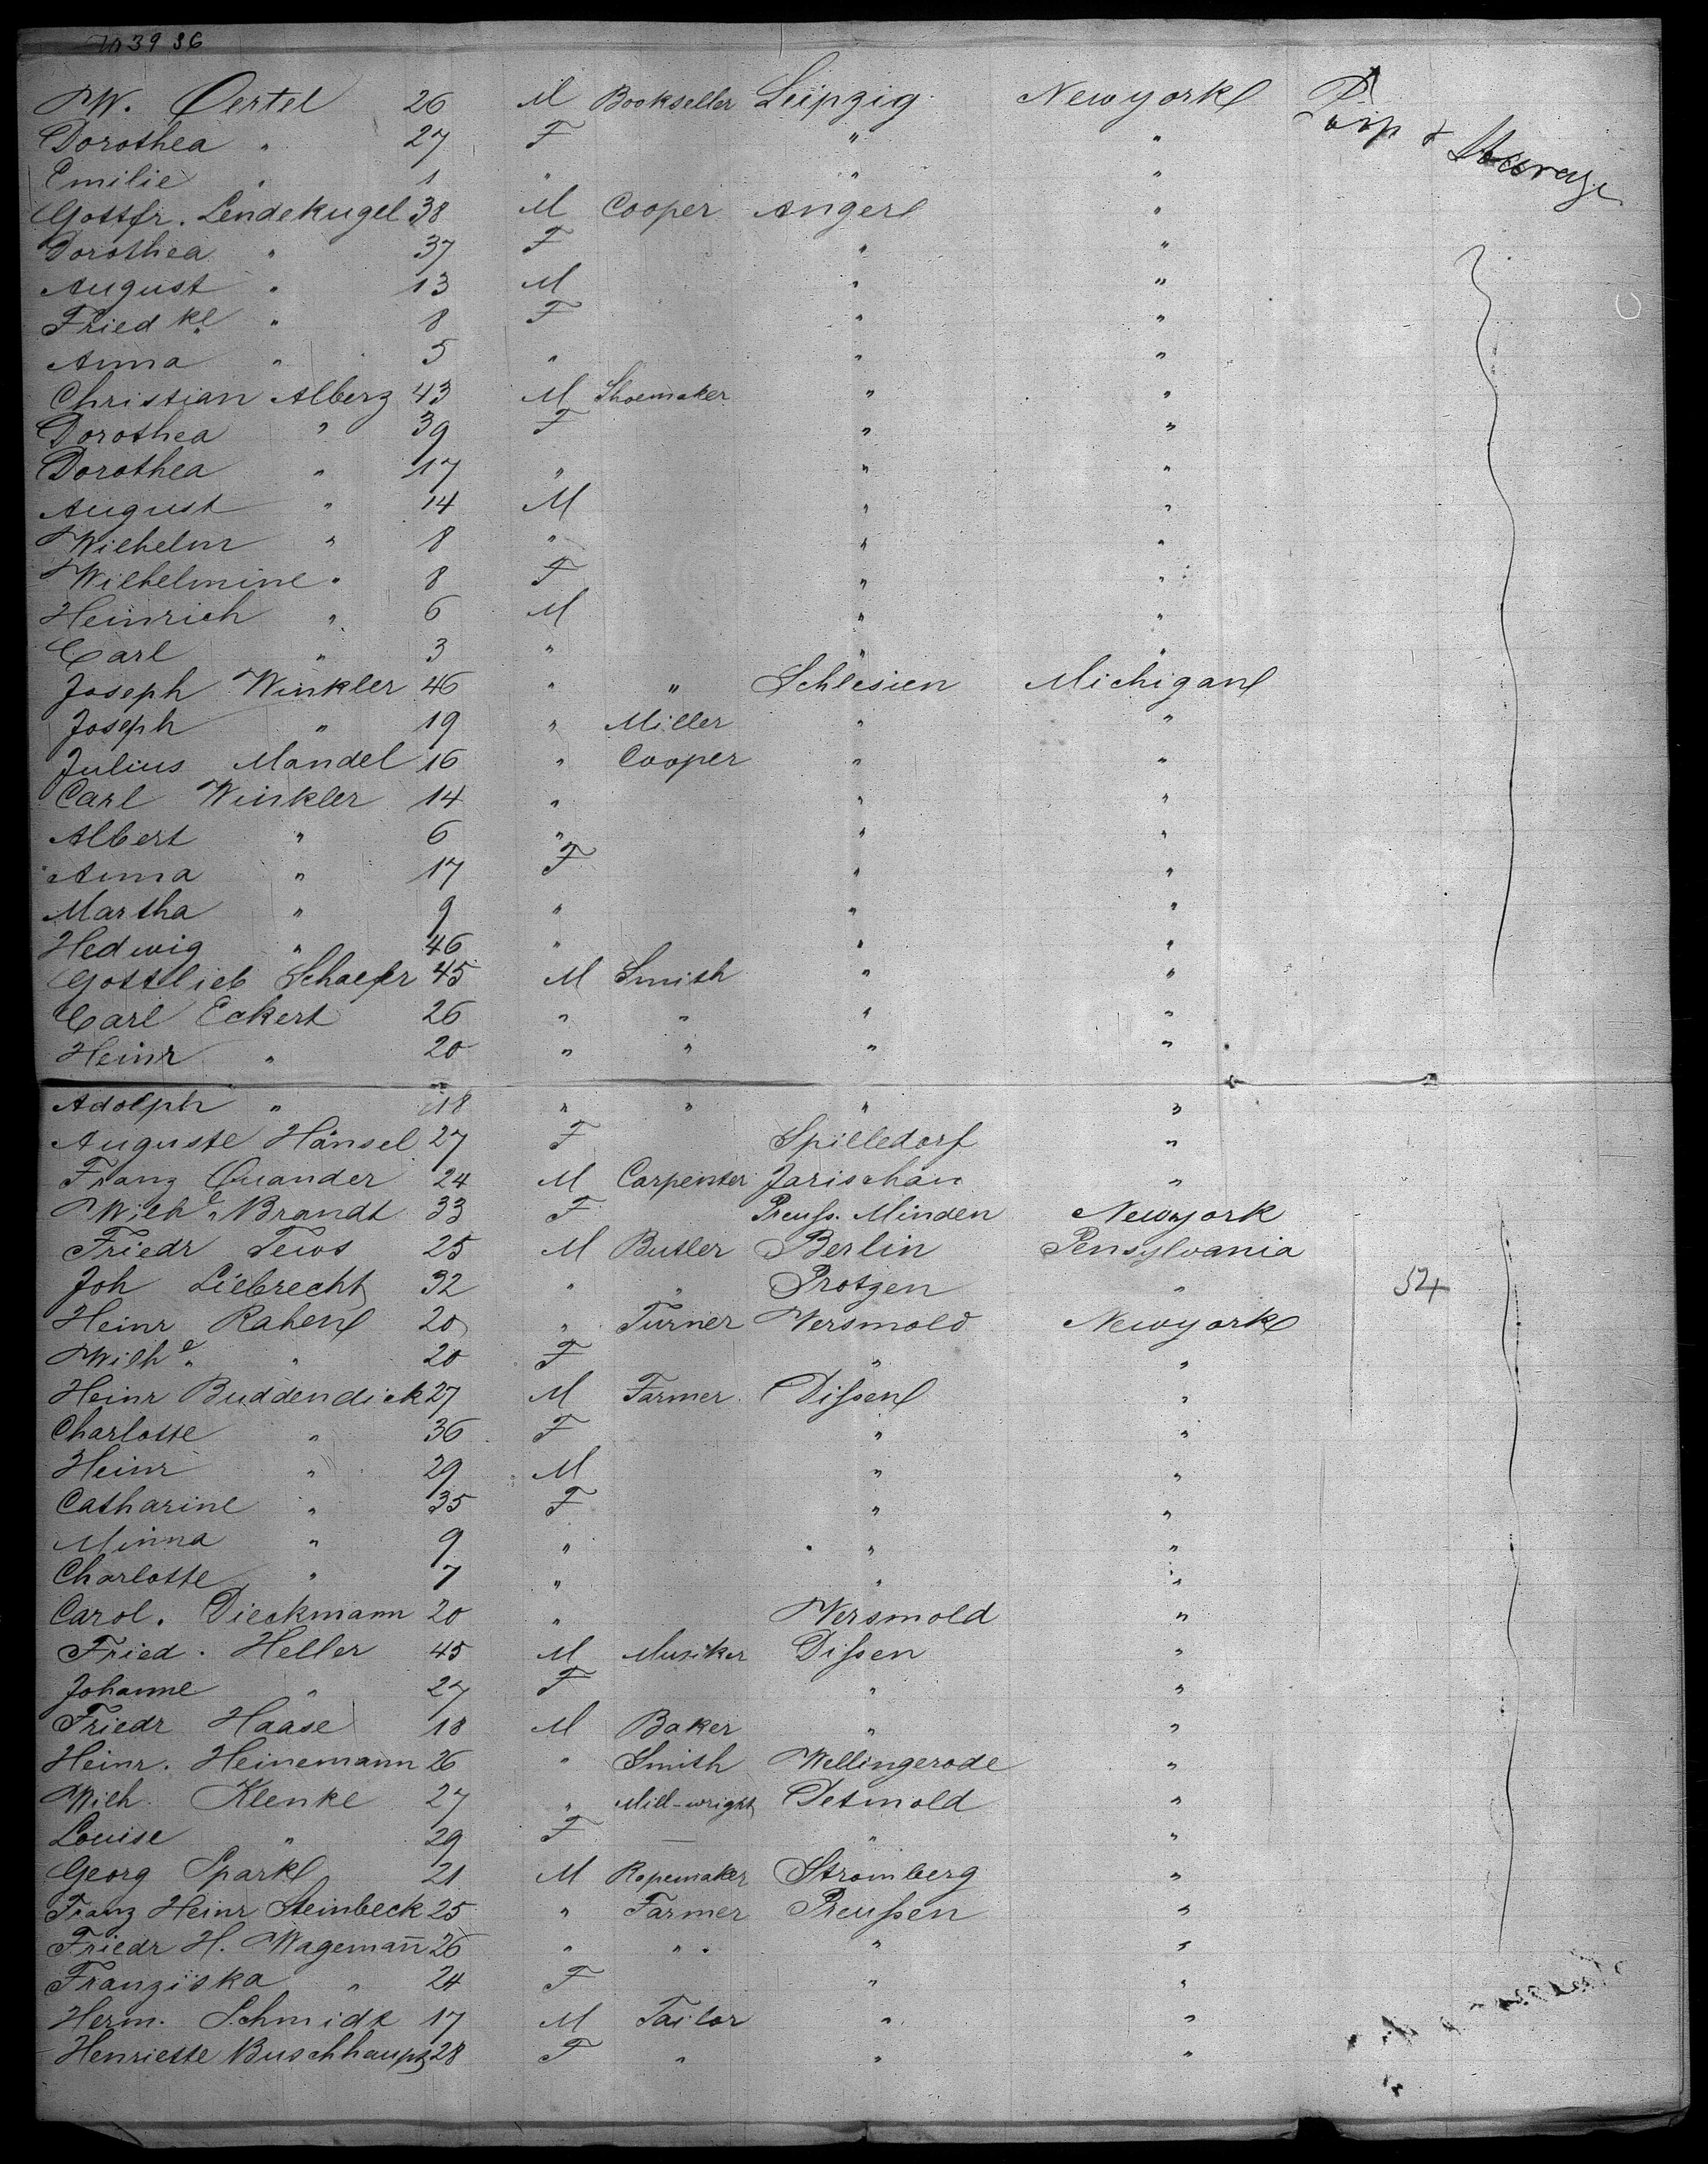 W. Oertel 26 M Bookseller Leipzig Newyork
Dorothea " 27 F " "
Emilie " 1 " " "
Gottfr. Lendekugel 38 M Cooper Anger "
Dorothea " 37 F " "
August " 13 M " "
Friedke " 8 F " "
Anna " 5 " " "
Christian Alberg 43 M Shoemaker " "
Dorothea " 39 F " "
Dorothea " 17 " " "
August " 14 M " "
Wilhelm " 8 " " "
Wilhelmine " 8 F " "
Heinrich " 6 M " "
Carl " 3 " " "
Joseph Winkler 46 " " Schlesien Michigan
Joseph " 19 " Miller " "
Julius Mandel 16 " Cooper " "
Carl Winkler 14 " " "
Albert " 6 " " "
Anna " 17 F " "
Martha " 9 " " "
Hedwig " 46 " " "
Gottlieb Schaefer 45 M Smith " "
Carl Eckert 26 " " " "
Heinr " 20 " " " "
Adolph " 18 " " " "
Auguste Hänsel 27 F Spilledorf "
Franz Quander 24 M Carpenter Jarischau "
Wilhe Brandt 33 F Preuss. Minden Newyork
Friedr Tews 25 M Butler Berlin Pensylvania
Joh Liebrecht 32 " " Protzen " 54
Heinr Rahen 20 " Turner Versmold Newyork
Wilhe " 20 F " "
Heinr Buddendiek 27 M Farmer Dissen "
Charlotte " 36 F " "
Heinr " 29 M " "
Catharine " 35 F " "
Minna " 9 " " "
Charlotte " 7 " " "
Carol. Dieckmann 20 " Versmold "
Fried. Heller 45 M Musiker Dissen "
Johanne " 27 F " "
Friedr Haase 18 M Baker " "
Heinr. Heinemann 26 " Smith Wellingerode "
Wilh. Klenke 27 " Mill-wright Detmold "
Louise " 29 F — " "
Georg Spark 21 M Ropemaker Stromberg "
Franz Heinr Steinbeck 25 " Farmer Preussen "
Friedr H. Wageman̄ 26 " " " "
Franziska " 24 F " "
Herm. Schmidt 17 M Tailor " "
Henriette Buschhaupt 28 F " " "